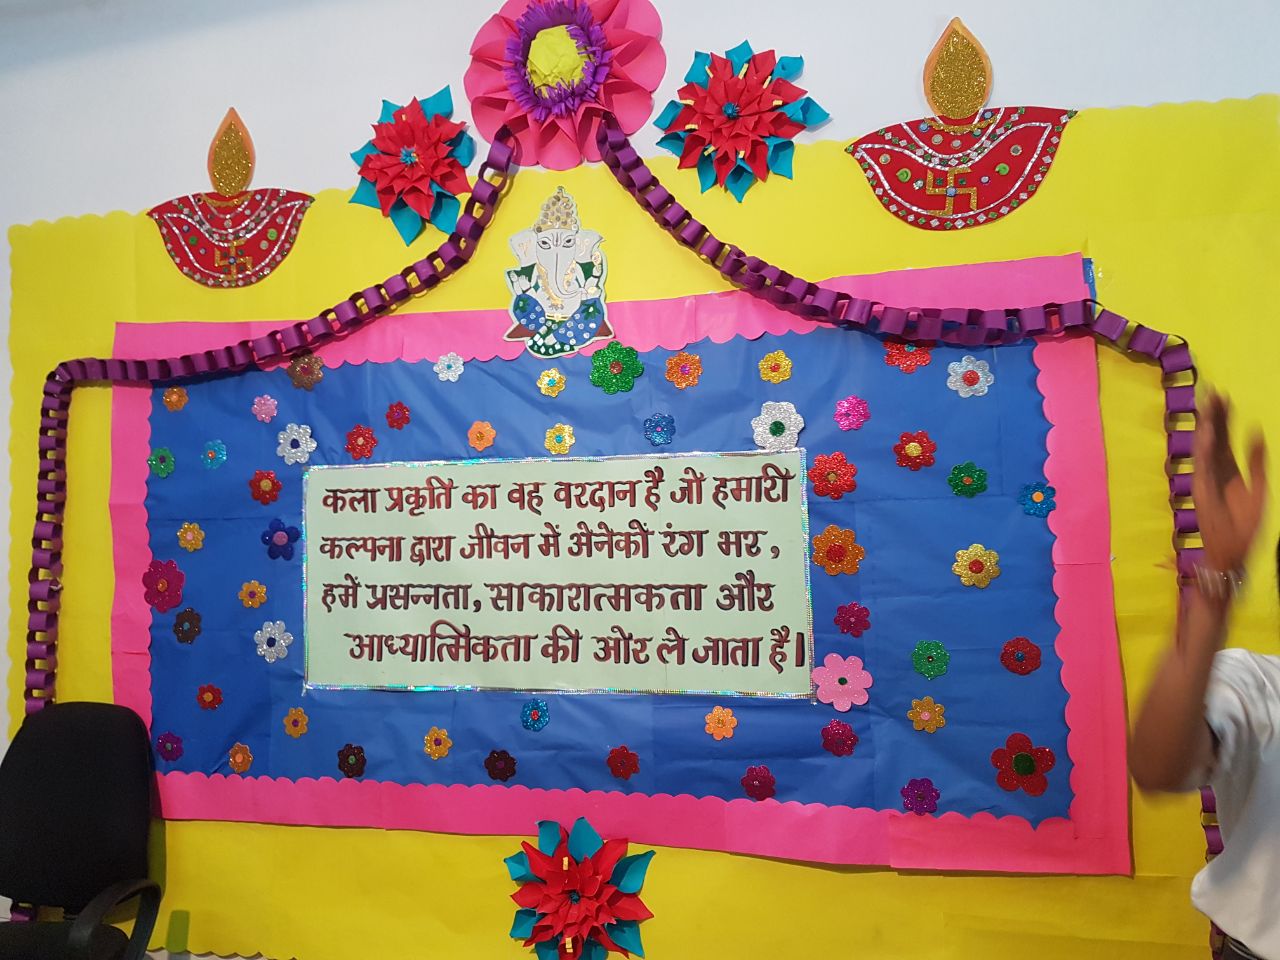 कला प्रकृति का वह वरदान है जो हमारी
कल्पना द्वारा जीवन में अेनेकों रंग भर,
हमें प्रसन्नता, साकारात्मकता और
आध्यात्मिकता की ओर ले जाता है।